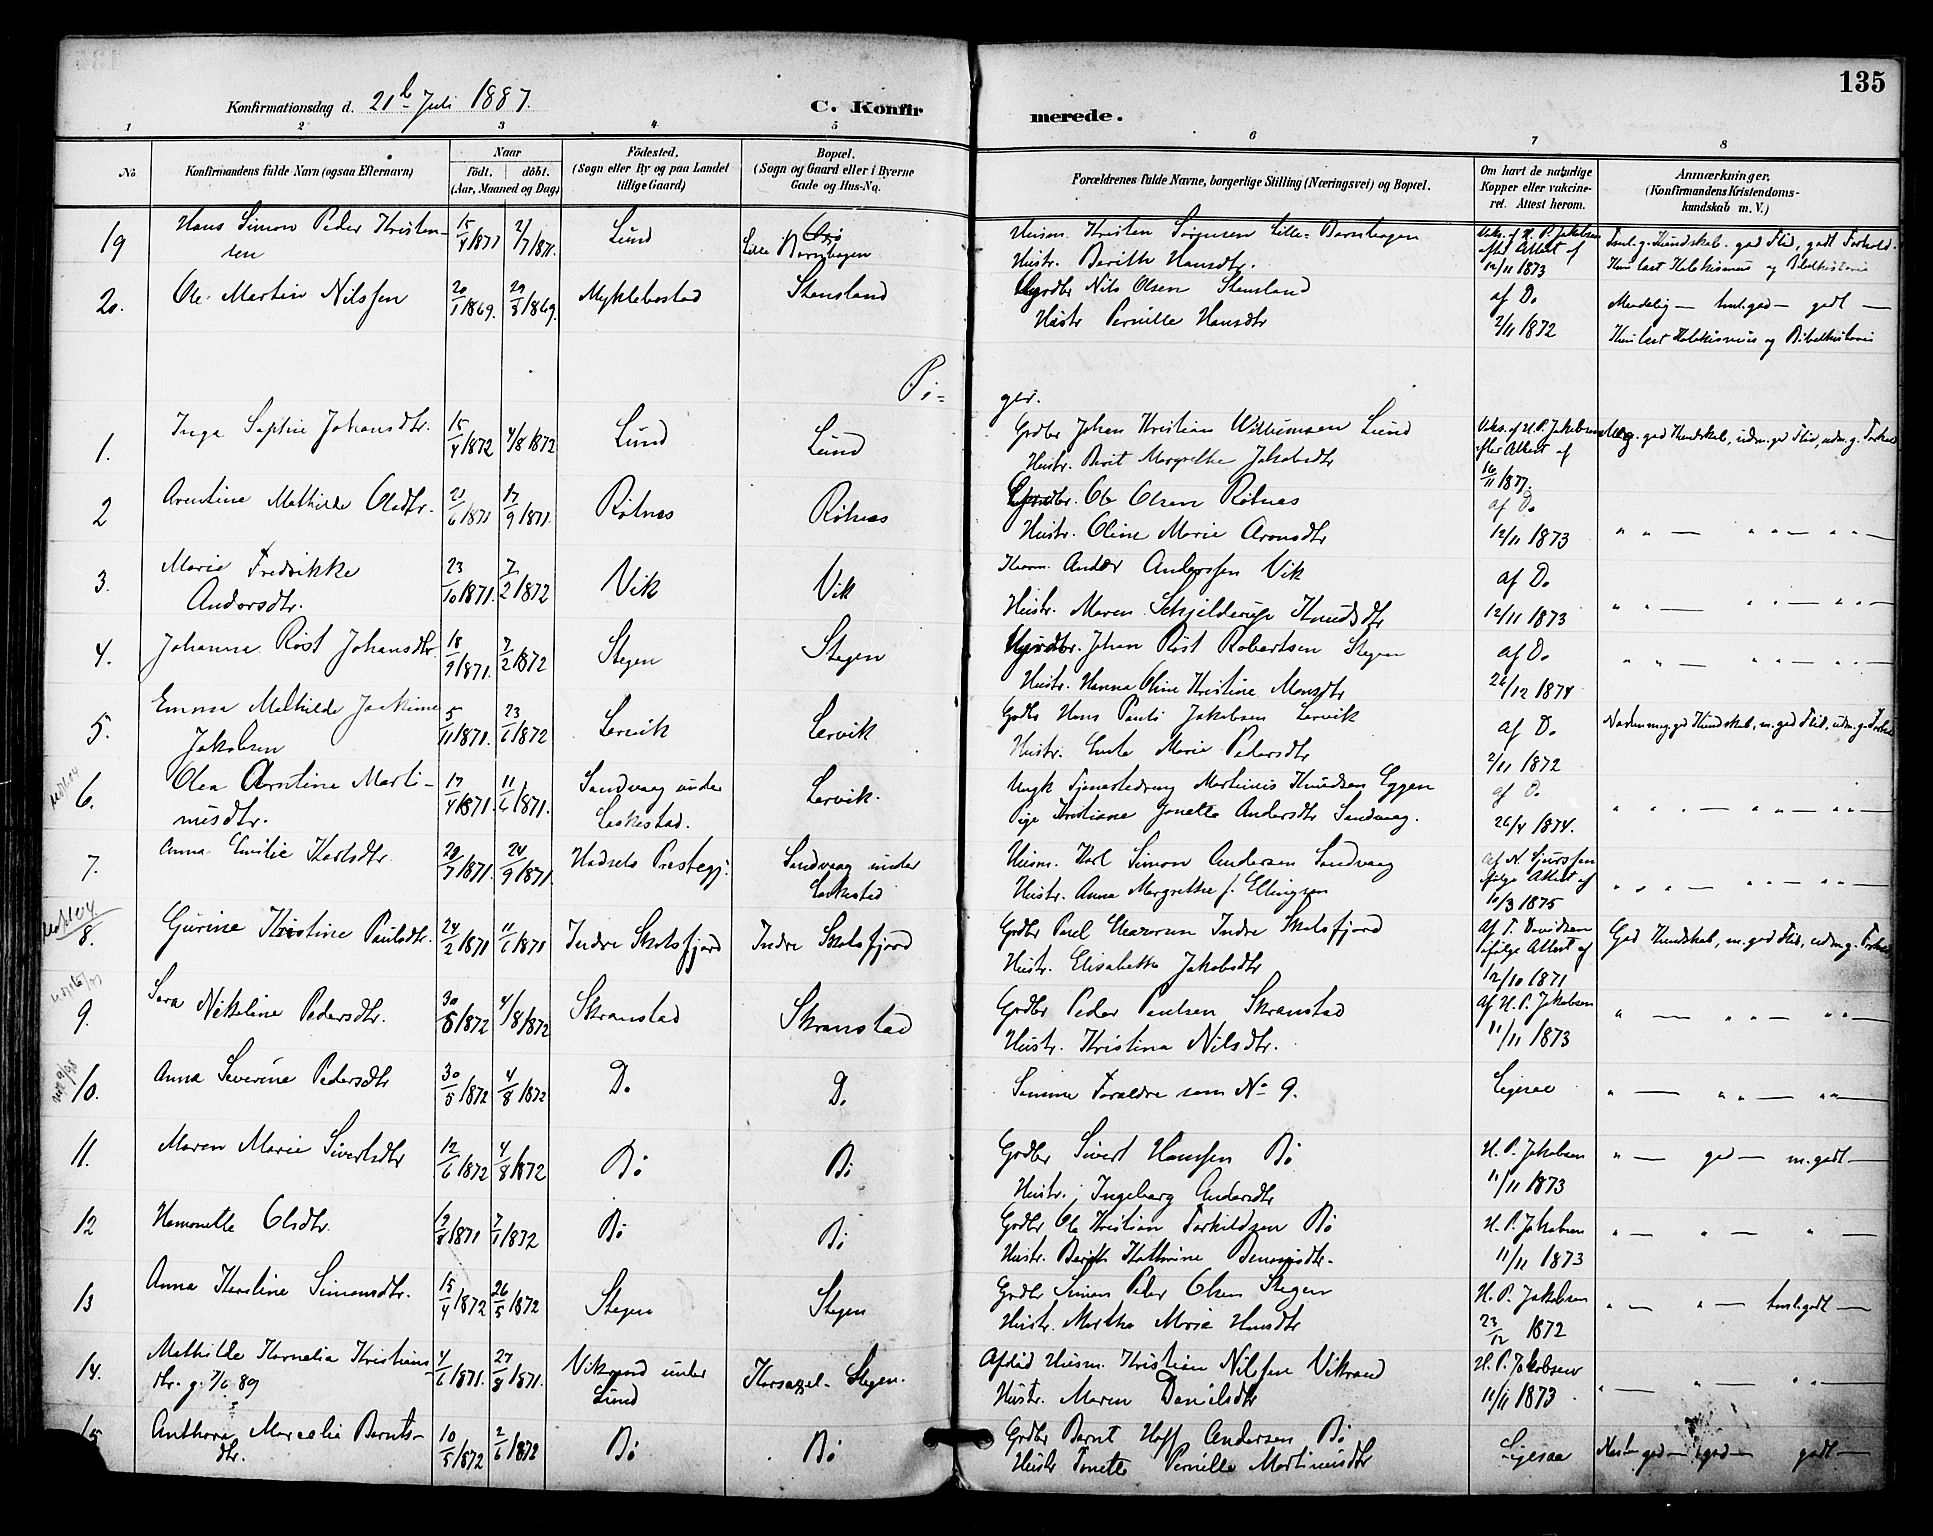 135
Konfirmationsdag d. 21de Juli 1887.
C. Konfirmerede.
1 2 3 4 5 6 7 8
No
Konfirmandens fulde Navn (ogsaa Efternavn)
Naar
født. døbt.
(Aar, Maaned og Dag)
Fødested.
(Sogn eller By og paa Landet
tillige Gaard)
Bopæl.
(Sogn og Gaard eller i Byerne
Gade og Hus-No.
Forældrenes fulde Navne, borgerlige Stilling (Næringsvei) og Bopæl.
Om havt de naturlige
Kopper eller vakcine-
ret. Attest herom.
Anmærkninger.
(Konfirmandens Kristendoms-
kundskab m. V.)
19 Hans Simon Peder Kristen- 15/4 1871 2/7 1871 Lund Lille Barnhagen Husm. Kristen Sørensen Lille-Barnhagen Vaks. af H. P. Jakobsen Teml. g. Kundskab. god Flid, godt Forhold.
sen Hustr. Berith Hansdtr. efter Attest af 12/11 1873 Kun læst Katekismus og Bibelhistorie
20. Ole Martin Nilssen 20/1 1869. 29/3 1869. Myklebostad Stensland Grdbr Nils Olsen Stensland af Do
Hustr Pernille Hansdtr 2/11 1872 Kun læst Katekismus og Bibelhistorie
Pi- ger.
1. Inga Sophie Johansdtr. 15/4 1872 4/8 1872 Lund Lund Grdbr Johan Kristian Willumsen Lund Vaks. af H. P. Jakobsen Meg. god Kundskab, udm. god Flid, udm. g. Forhold
Hustr. Berit Margrethe Jakobsdtr efter Attest af 16/11 1877.
2 Arentine Mathilde Olsdtr. 21/6 1871 17/9 1871. Røtnes Røtnes Grdbr. Ole Olsen Røtnes af Do
Hustr. Oline Marie Aronsdtr 12/11 1873 " " — " " — " " —
3. Marie Fredrikke 23/10 1871. 7/2 1872 Vik Vik Anders Anderssen Vik af Do
Andersdtr. Hustr. Maren Schjelderup Knudsdtr 12/11 1873 " " — " " — " " —
4. Johanna Røst Johansdtr. 18/9 1871. 7/2 1872 Stegen Stegen Grdbr. Johan Røst Robertsen Stegen af Do " " — " " — " " —
Hustr. Hanna Oline Kristine Monsdtr 26/12 1874
5. Emma Mathilde Joakime 5/11 1871. 23/6 1872 Lervik Lervik Grdbr Hans Pauli Jakobsen Lervik af Do
Jakobsen Hustr. Marie Pedersdtr 2/11 1872
6. Olea Arntine Marti- 17/4 1871. 11/6 1871. Sandvaag under Lervik. Ungk Martinus Knudsen Eggen af Do
nusdtr. Laskestad. Pige Kristiane Jonette Andersdtr Sandvaag. 26/4 1874. " " " — " " — " " —
7. Anna Emilie Karlsdtr. 29/7 1871. 24/9 1871. Hadsels Prestegj: Sandvaag under Husm. Karl Simon Andersen Sandvaag af N. Sjurssen
Laskestad Hustr. Anna Margrethe f. Ellingsen ifølge Attest af 10/3 1875 " " " — " " — " " —
8. Gurine Kristine Paulsdtr. 24/2 1871 11/6 1871 Indre Skotsfjord Indre Skotsfjord Grdbr Paul Indre Skotsfjord Af T. Davidsen God Kundskab, m. god Flid, udm. g. Forhold
Hustr. Elisabeth Jakobsdtr ifølge Attest af 12/10 1871
9. Sara Nikoline Pedersdtr. 30/5 1872 4/8 1872 Skranstad Skranstad Grdbr Peder Paulsen Skranstad Af H. P. Jakobsen
Hustr. Kristina Nilsdtr. 11/11 1873 " — " " — " " —
10. Anna Severine Pedersdtr 30/5 1872 4/8 1872 Do Do Samme Forældre som No 9. Ligesaa " — " " — " " —
11. Maren Marie Sivertsdtr 12/6 1872 4/8 1872 Bø Bø Grdbr Sivert Hanssen Bø H. P. Jakobsen " — god — m. godt —
Hustr. Ingeborg Andersdtr 11/11 1873
12 Hemonette Olsdtr. 7/1 1872 Bø Bø Grdbr Ole Kristian Torkildsen Bø H. P. Jakobsen " — " — " —
Hustr. Berith Kathrine 11/11 1873
13 Anna Karoline Simonsdtr. 15/4 1872 26/5 1872 Stegen Stegen Grdbr Simon Peder Olsen Stegen H. P. Jakobsen " — " — teml. godt —
Hustr. Martha Marie Hansdtr 23/12 1872
14. Mathilde Kornelia Kristians- 4/6 1871. 27/8 1871. Vikrand under Stegen. Afdød Husm. Kristian Nilssen Vikrand H. P. Jakobsen
dtr. g. 7/6 89 Lund Hustr. Maren Danielsdtr 11/11 1873 " — " — " " —
15 Anthora Marcelie Bernts- 10/5 1872 2/6 1872 Bø Bø Grdbr Bernt Hoff Andersen Bø Ligesaa Næsten god — god — godt —
dtr. Hustr Tonette Pernille Martinusdtr